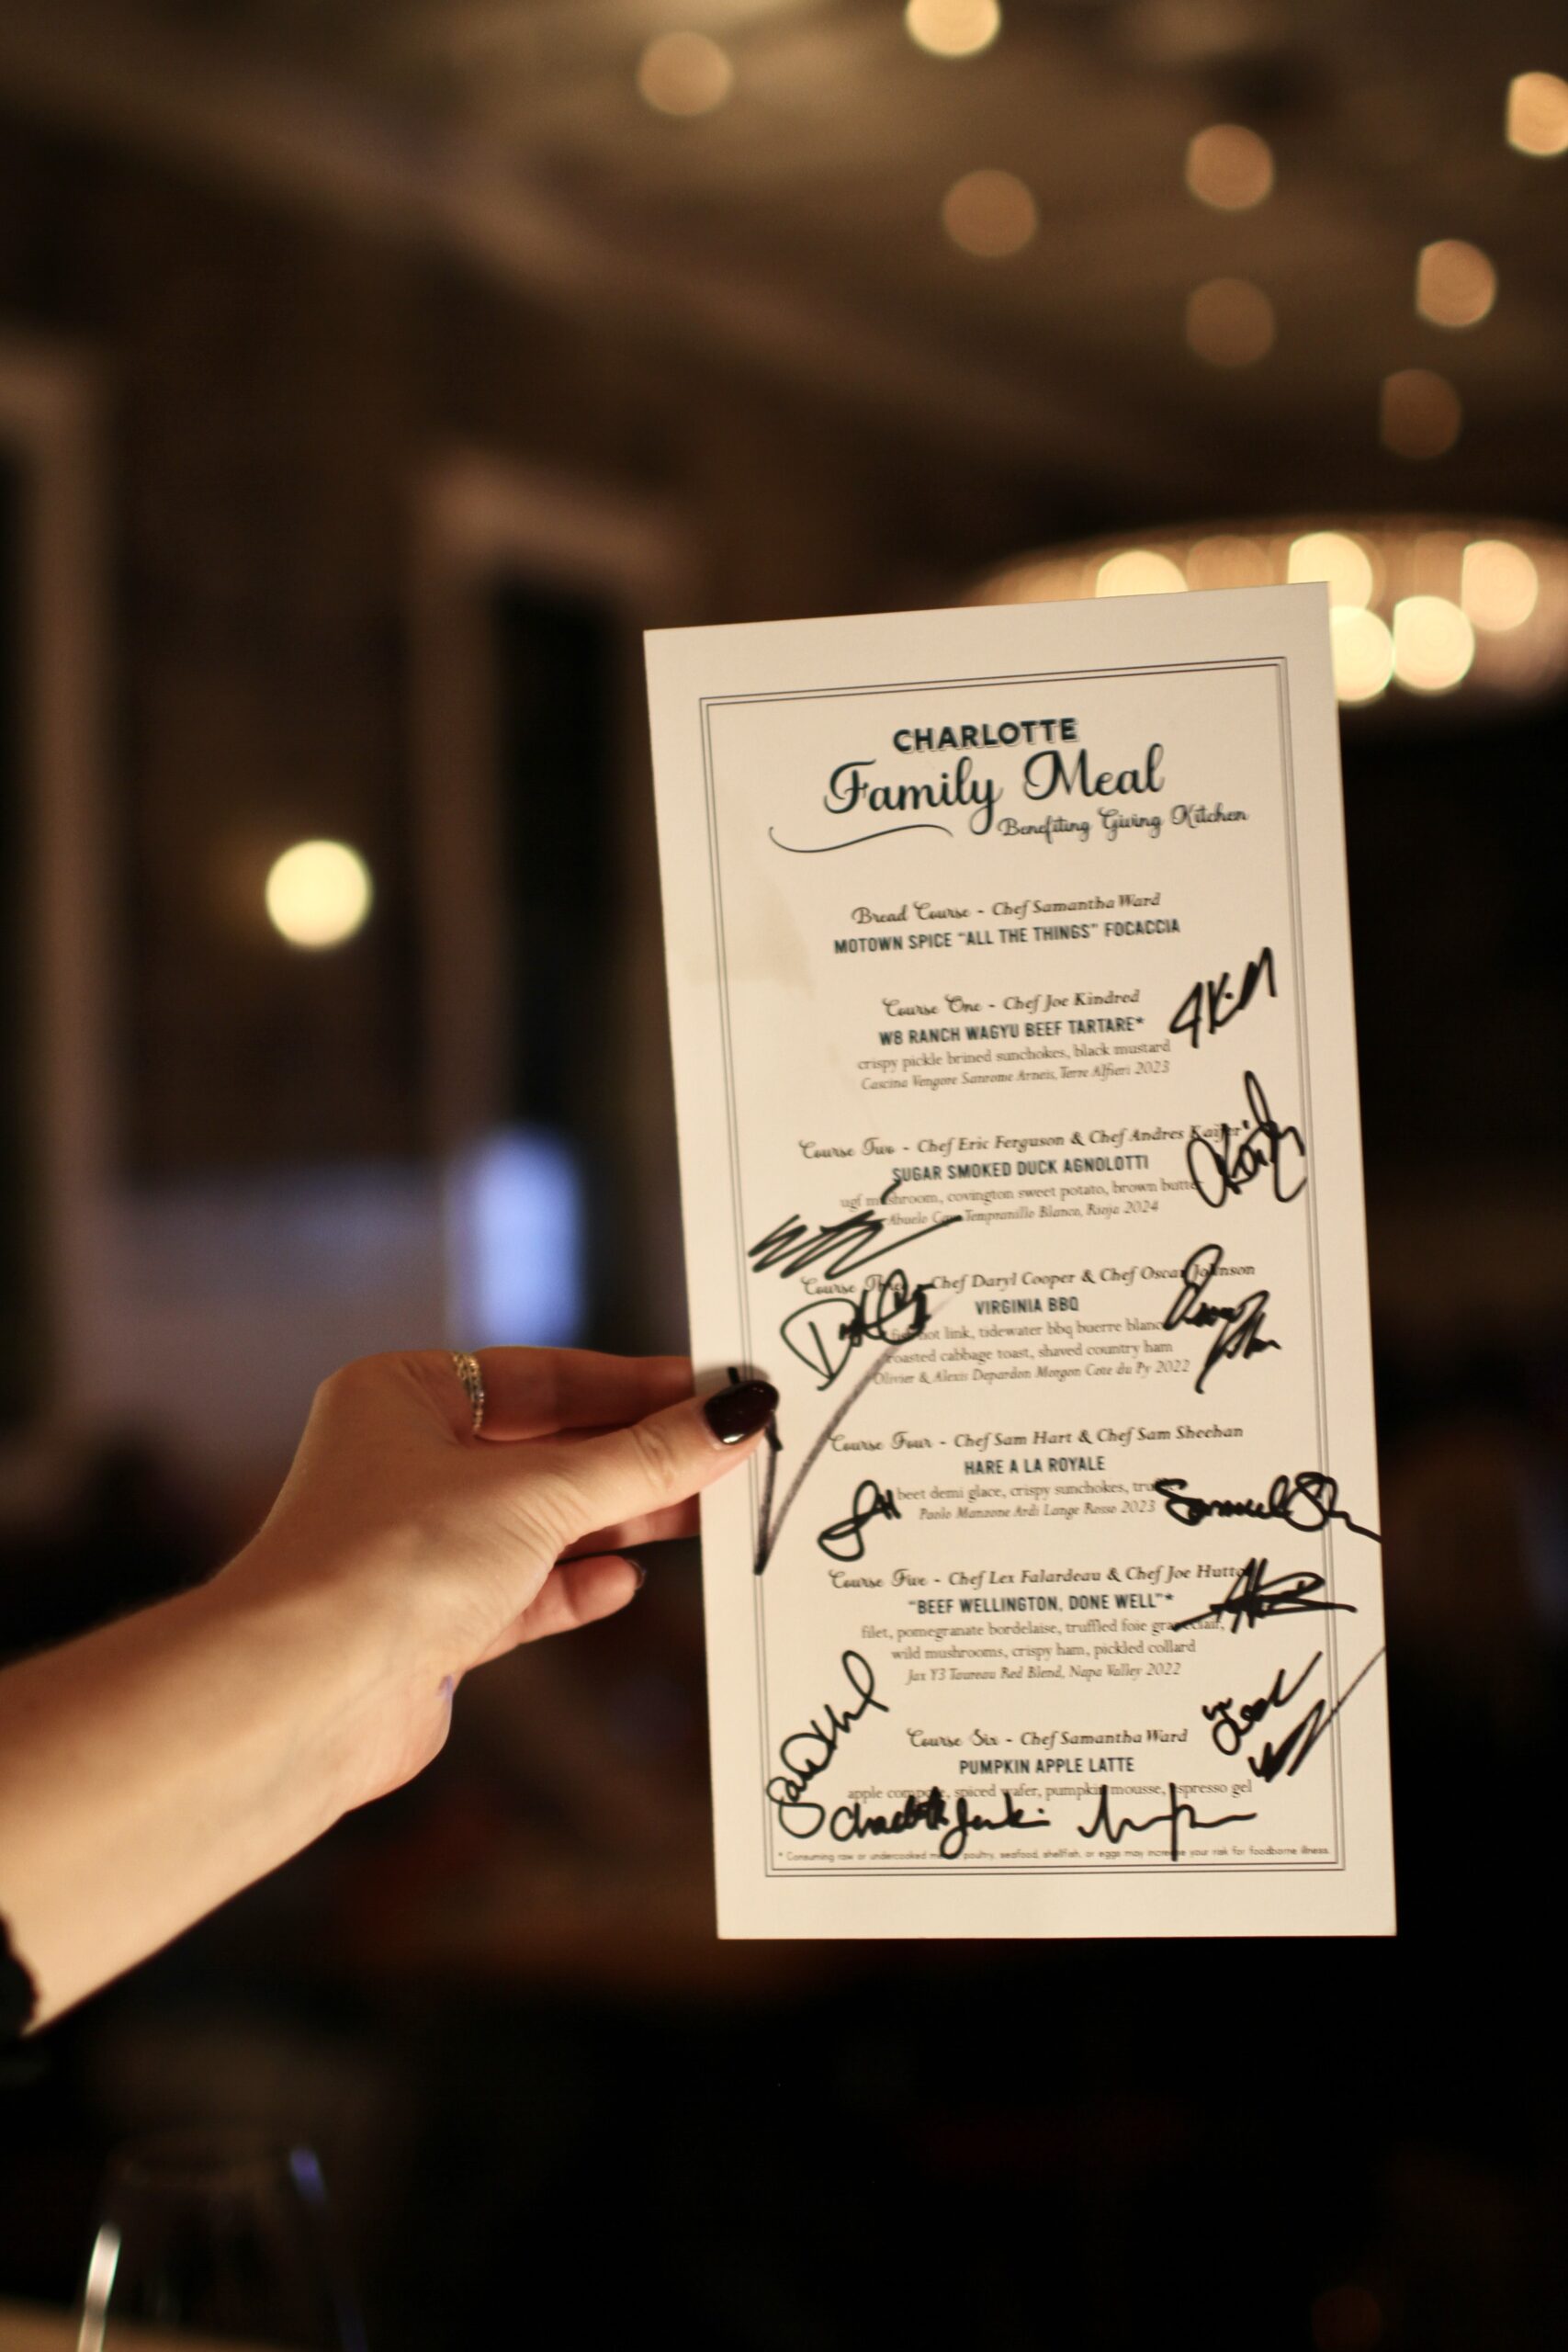 CHARLOTTE
Family Meal
Benefiting Giving Kitchen
Bread Course - Chef Samantha Ward
MOTOWN SPICE "ALL THE THINGS" FOCACCIA
Course One - Chef Joe Kindred
W8 RANCH WAGYU BEEF TARTARE*
crispy pickle brined sunchokes, black mustard
Cascina Vengore Sanrome Arneis, Terre Alfieri 2023
Course Two - Chef Eric Ferguson & Chef Andres Kaifer
SUGAR SMOKED DUCK AGNOLOTTI
ugf mushroom, covington sweet potato, brown butter
Abuelo Tempranillo Blanco, Rioja 2024
Course Three - Chef Daryl Cooper & Chef Oscar Johnson
VIRGINIA BBQ
hot link, tidewater bbq buerre blanc
roasted cabbage toast, shaved country ham
Olivier & Alexis Depardon Morgon Cote du Py 2022
Course Four - Chef Sam Hart & Chef Sam Sheehan
HARE A LA ROYALE
beet demi glace, crispy sunchokes,
Paolo Manzone Ardi Lange Rosso 2023
Samuel
Course Five - Chef Lex Falardeau & Chef Joe Hutto
"BEEF WELLINGTON, DONE WELL"*
filet, pomegranate bordelaise, truffled foie gras eclair,
wild mushrooms, crispy ham, pickled collard
Jax Y3 Taureau Red Blend, Napa Valley 2022
Course Six - Chef Samantha Ward
PUMPKIN APPLE LATTE
apple compote, spiced wafer, pumpkin mousse, espresso gel
* Consuming raw or undercooked meats, poultry, seafood, shellfish, or eggs may increase your risk for foodborne illness.